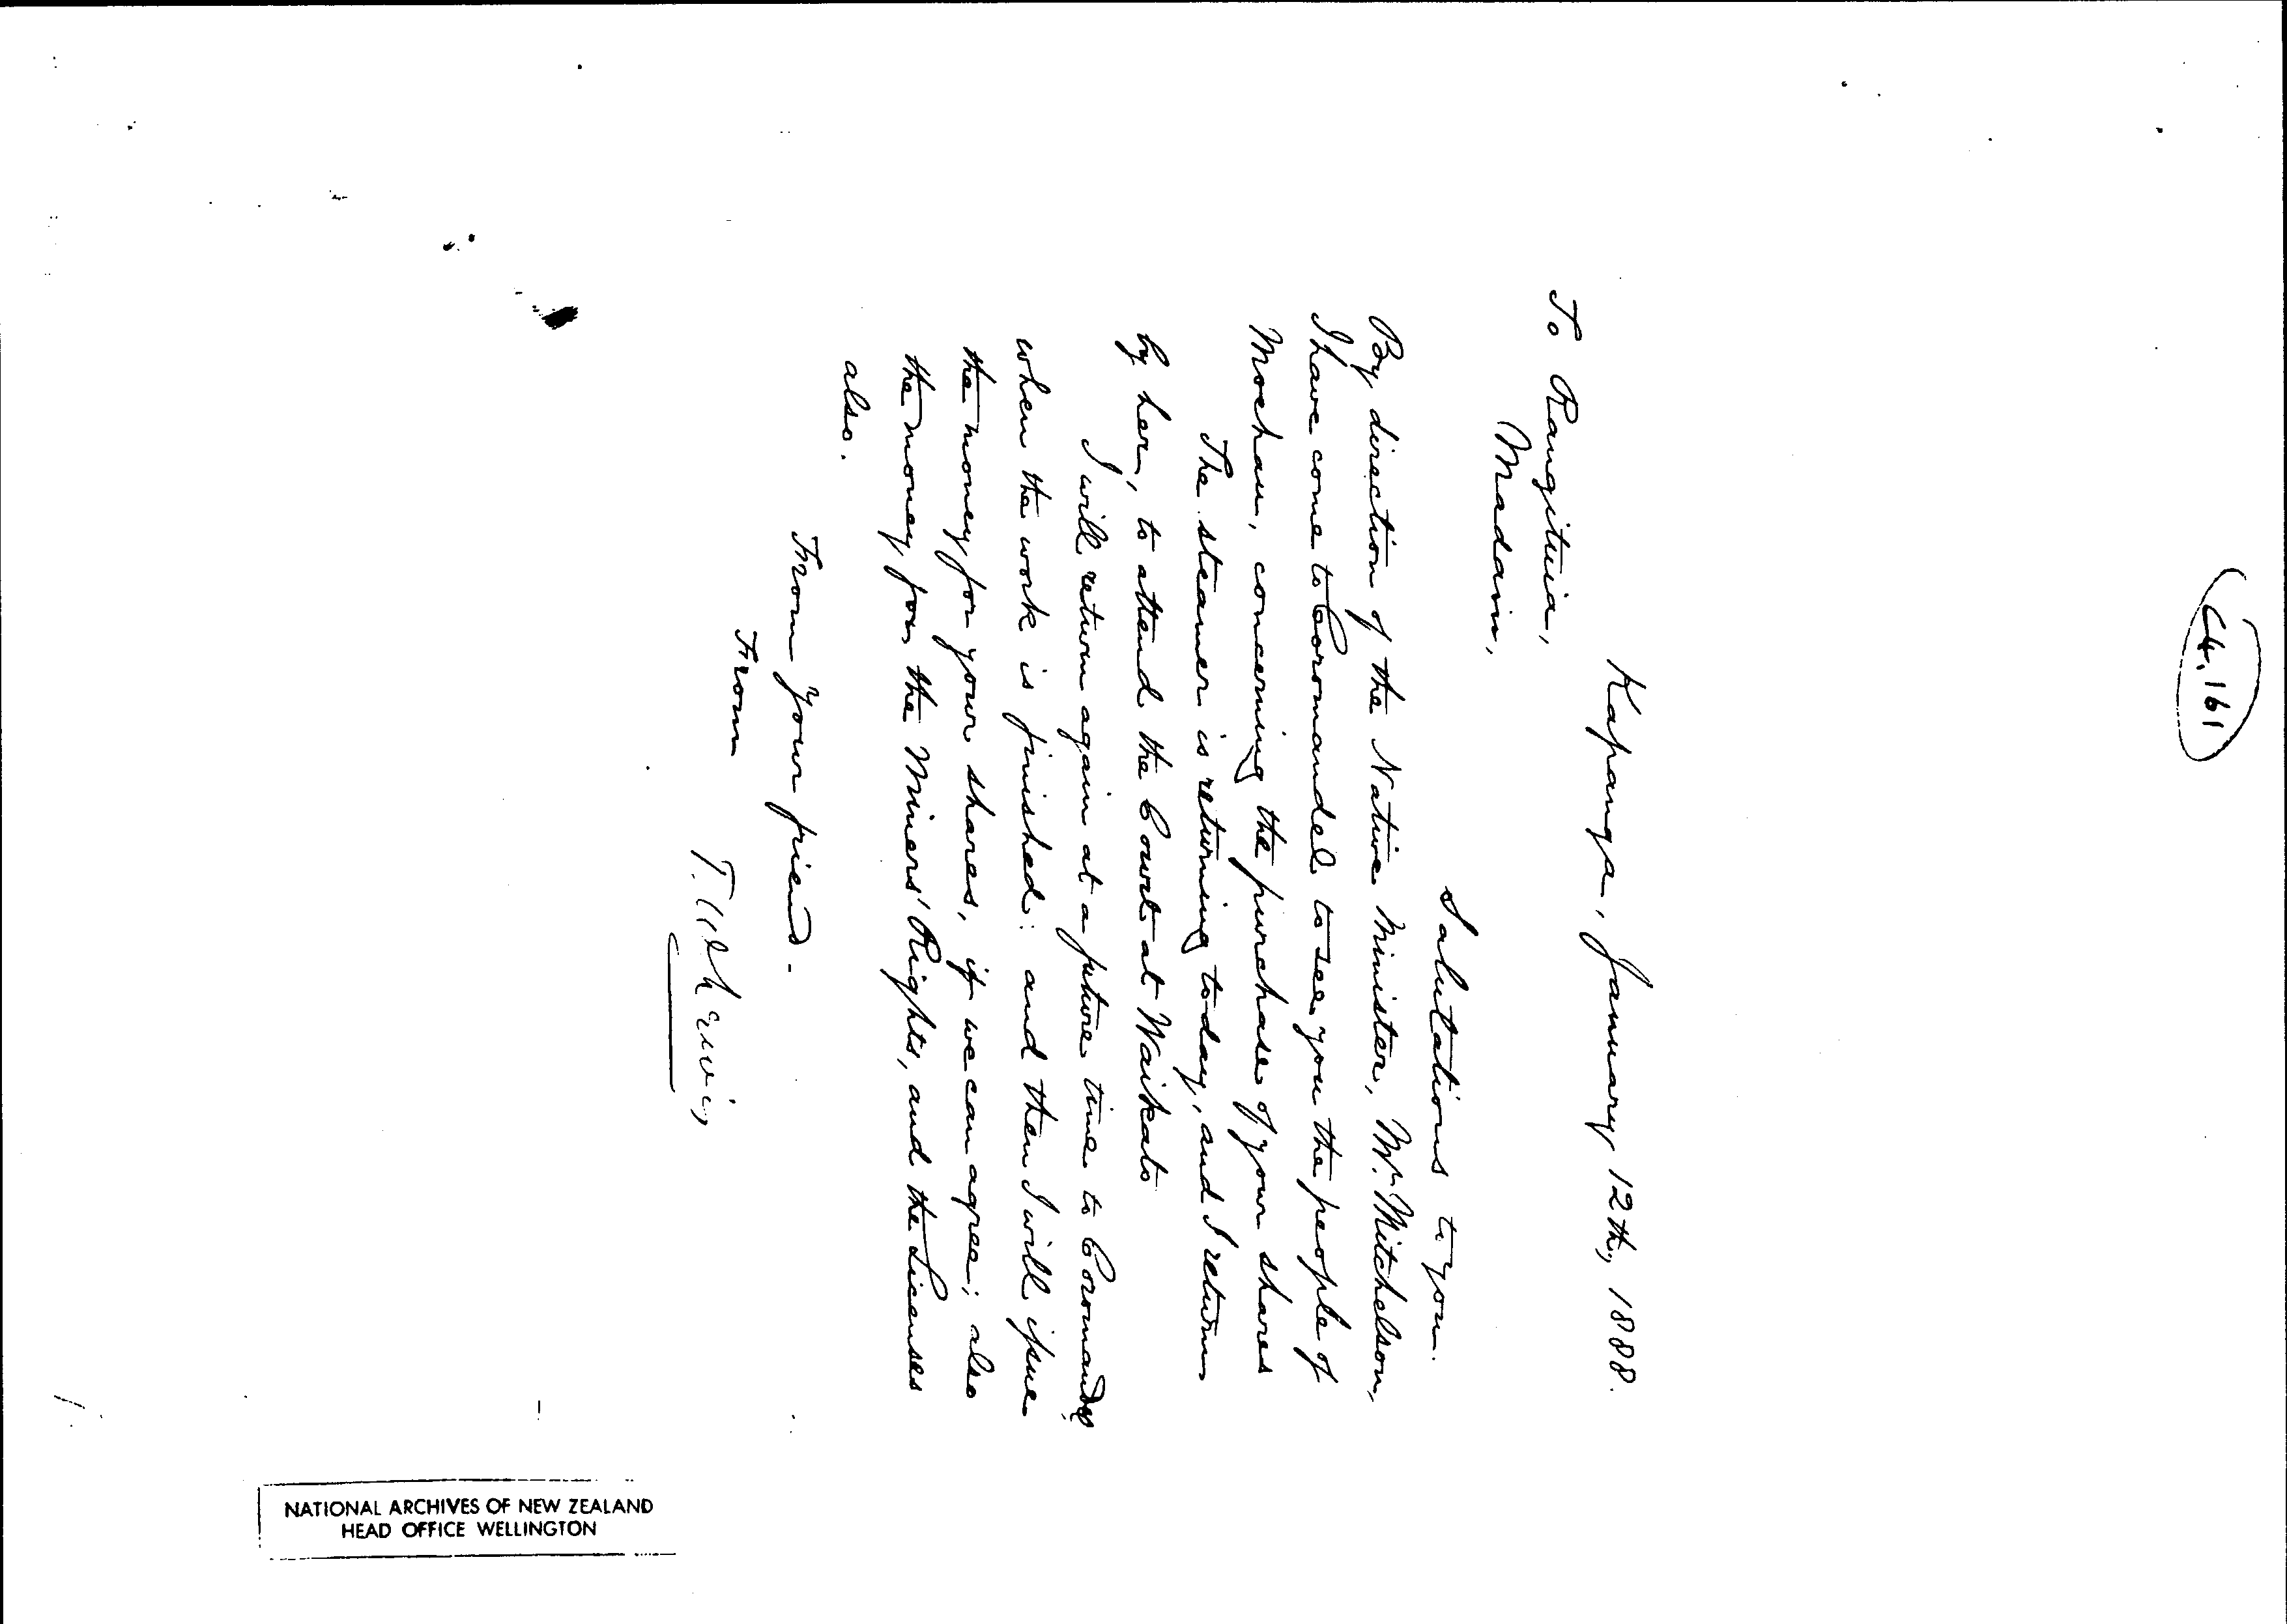 C4.161
Kapanga, January 12th, 1888.
To Rangituia,
Madam,
Salutations to you.
By direction of the Native Minister, Mr. Mitchelson,
I have come to Coromandel to see you the people of
Moehau, concerning the purchase of your shares
The steamer is returning today, and I return
by her, to attend the Court at Waikato
I will return again at a future time to Coromandel
when the work is finished: and then I will issue
the money for your shares, if we can agree; also
the money for the Miners' Rights, and the Licenses
also.
From your friend.
From
NATIONAL ARCHIVES OF NEW ZEALAND
HEAD OFFICE WELLINGTON